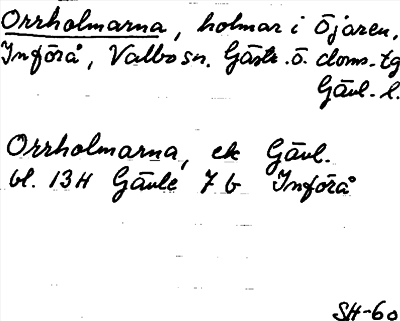 Orrholmarna, holmar i Öjaren,
Införå, Valbo sn. Gästr. ö. doms. tg
Gävl. l.
Orrholmarna, ek Gävl.
bl. 13H Gävle 7 b Införå
SH-60